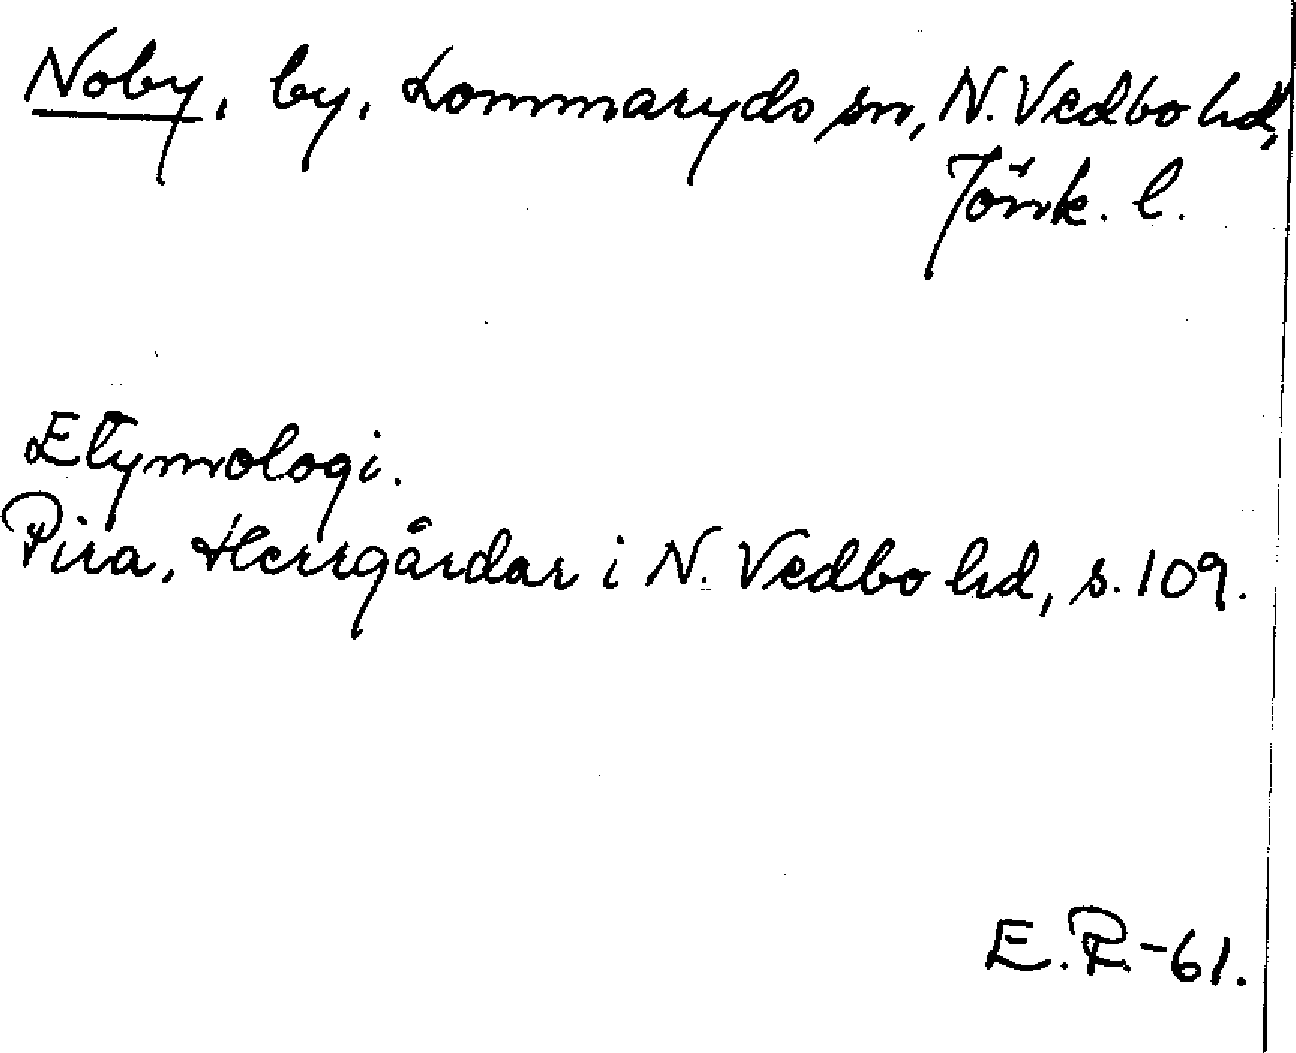 Noby, by, Lommaryds sn, N. Vedbo hd,
Jönk. l.
Etymologi.
Pira, Herrgårdar i N. Vedbo hd, s. 109.
E. R. -61.